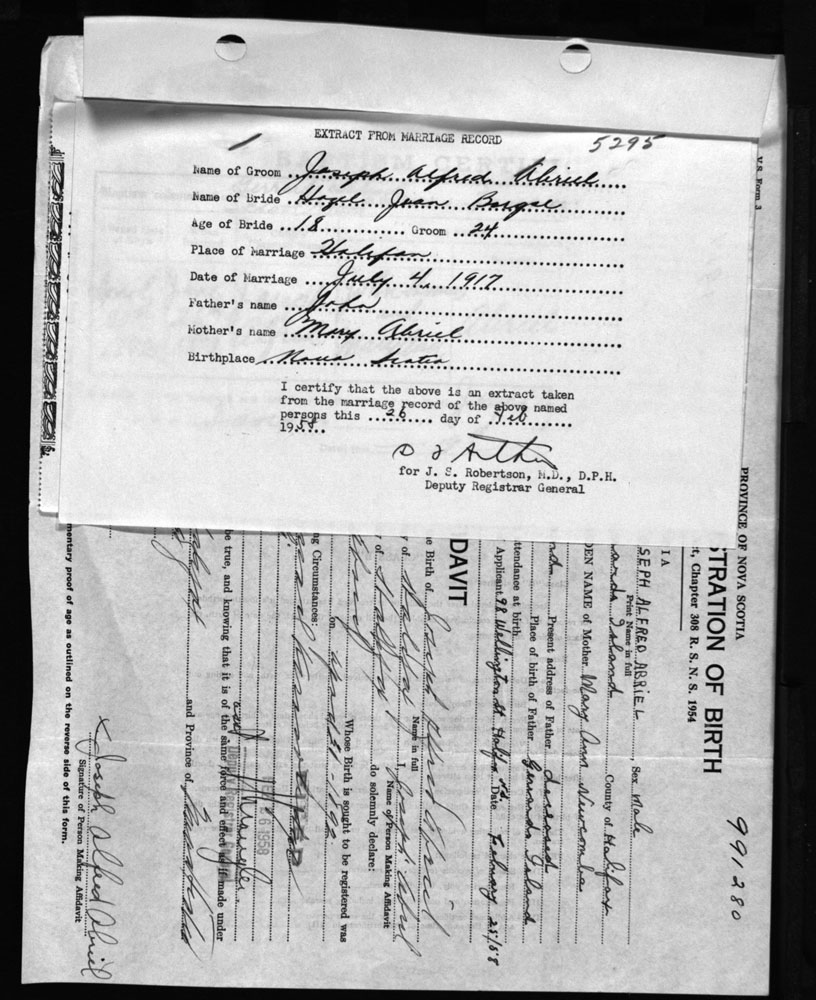 EXTRACT FROM MARRIAGE RECORD
5295
Name of Groom Joseph Alfred Abriel
Name of Bride Hazel Joan
Age of Bride 18 Groom 24
Place of Marriage Halifax
Date of Marriage July 4, 1917
Father's name John
Mother's name Mary Abriel
Birthplace Nova Scotia
I certify that the above is an extract taken
from the marriage record of the above named
persons this 26 day of Feb
1958
for J. S. Robertson, M.D., D.P.H.
Deputy Registrar General
V.S. Form 3
991280
PROVINCE OF NOVA SCOTIA
STRATION OF BIRTH
t, Chapter 308 R. S. N. S. 1954
I A
SEPH ALFRED ABRIEL, Sex Male
Print Name in full
Island County of Halifax
DEN NAME of Mother Mary Ann Newcombe
Present address of Father deceased
Place of birth of Father Island
ttendance at birth.
Applicant 98 Wellington St Halifax Date February 25/58
DAVIT
e Birth of Joseph Alfred Abriel
Name in full
y of Halifax I, Joseph Abriel
Name of Person Making Affidavit
y of Halifax do solemnly declare:
Whose Birth is sought to be registered was
on
ng Circumstances:
1958
Deputy Registrar General
be true, and knowing that it is of the same force and effect as if made under
and Province of
x Joseph Alfred Abriel
Signature of Person Making Affidavit
mentary proof of age as outlined on the reverse side of this form.